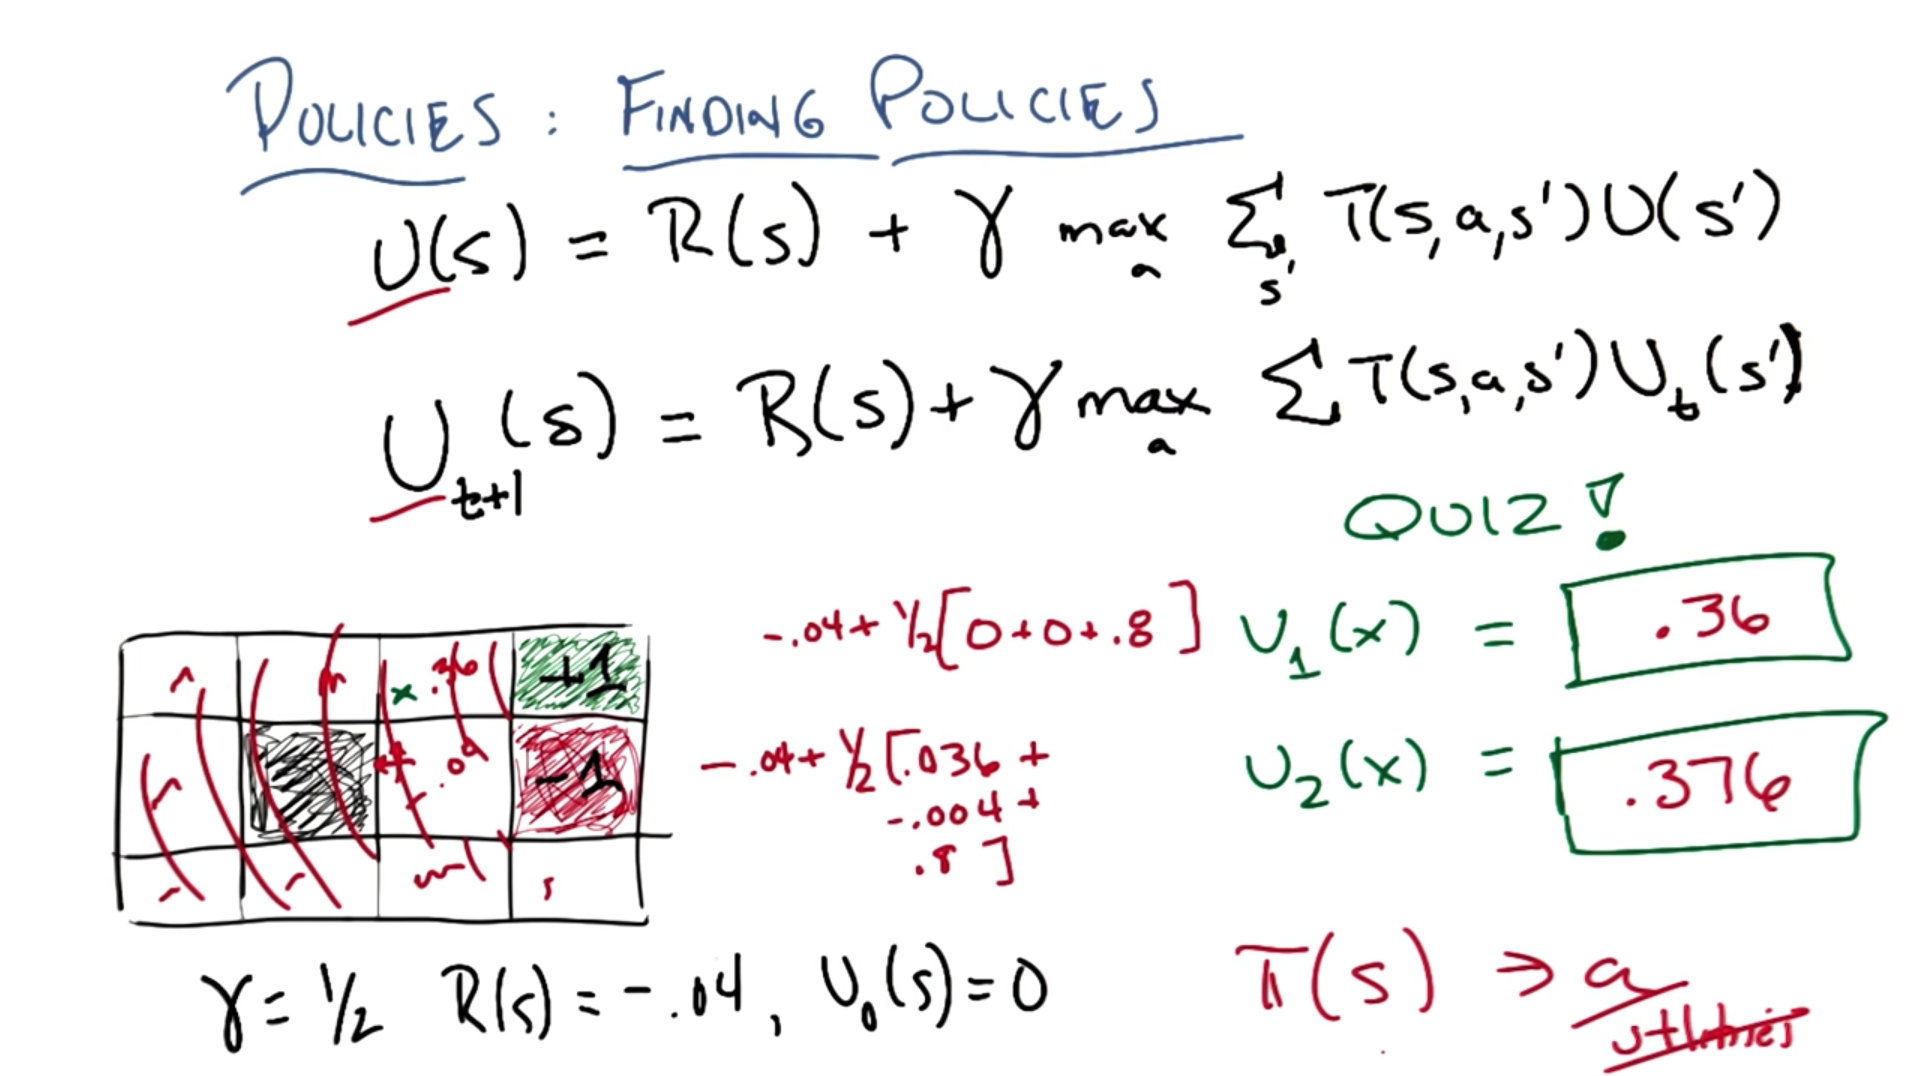 POLICIES : FINDING POLICIES
U(s) = R(s) + γ max_a Σ_s' T(s,a,s')U(s')
U_t+1(s) = R(s) + γ max_a Σ T(s,a,s')U_t(s')
QUIZ!
-.04 + 1/2[0+0+.8] U_1(x) = .36
-.04 + 1/2[.036 +
-.004 +
.8]
U_2(x) = .376
x .36 +1
-1
γ = 1/2 R(s) = -.04, U_0(s) = 0
π(s) → a
utilities